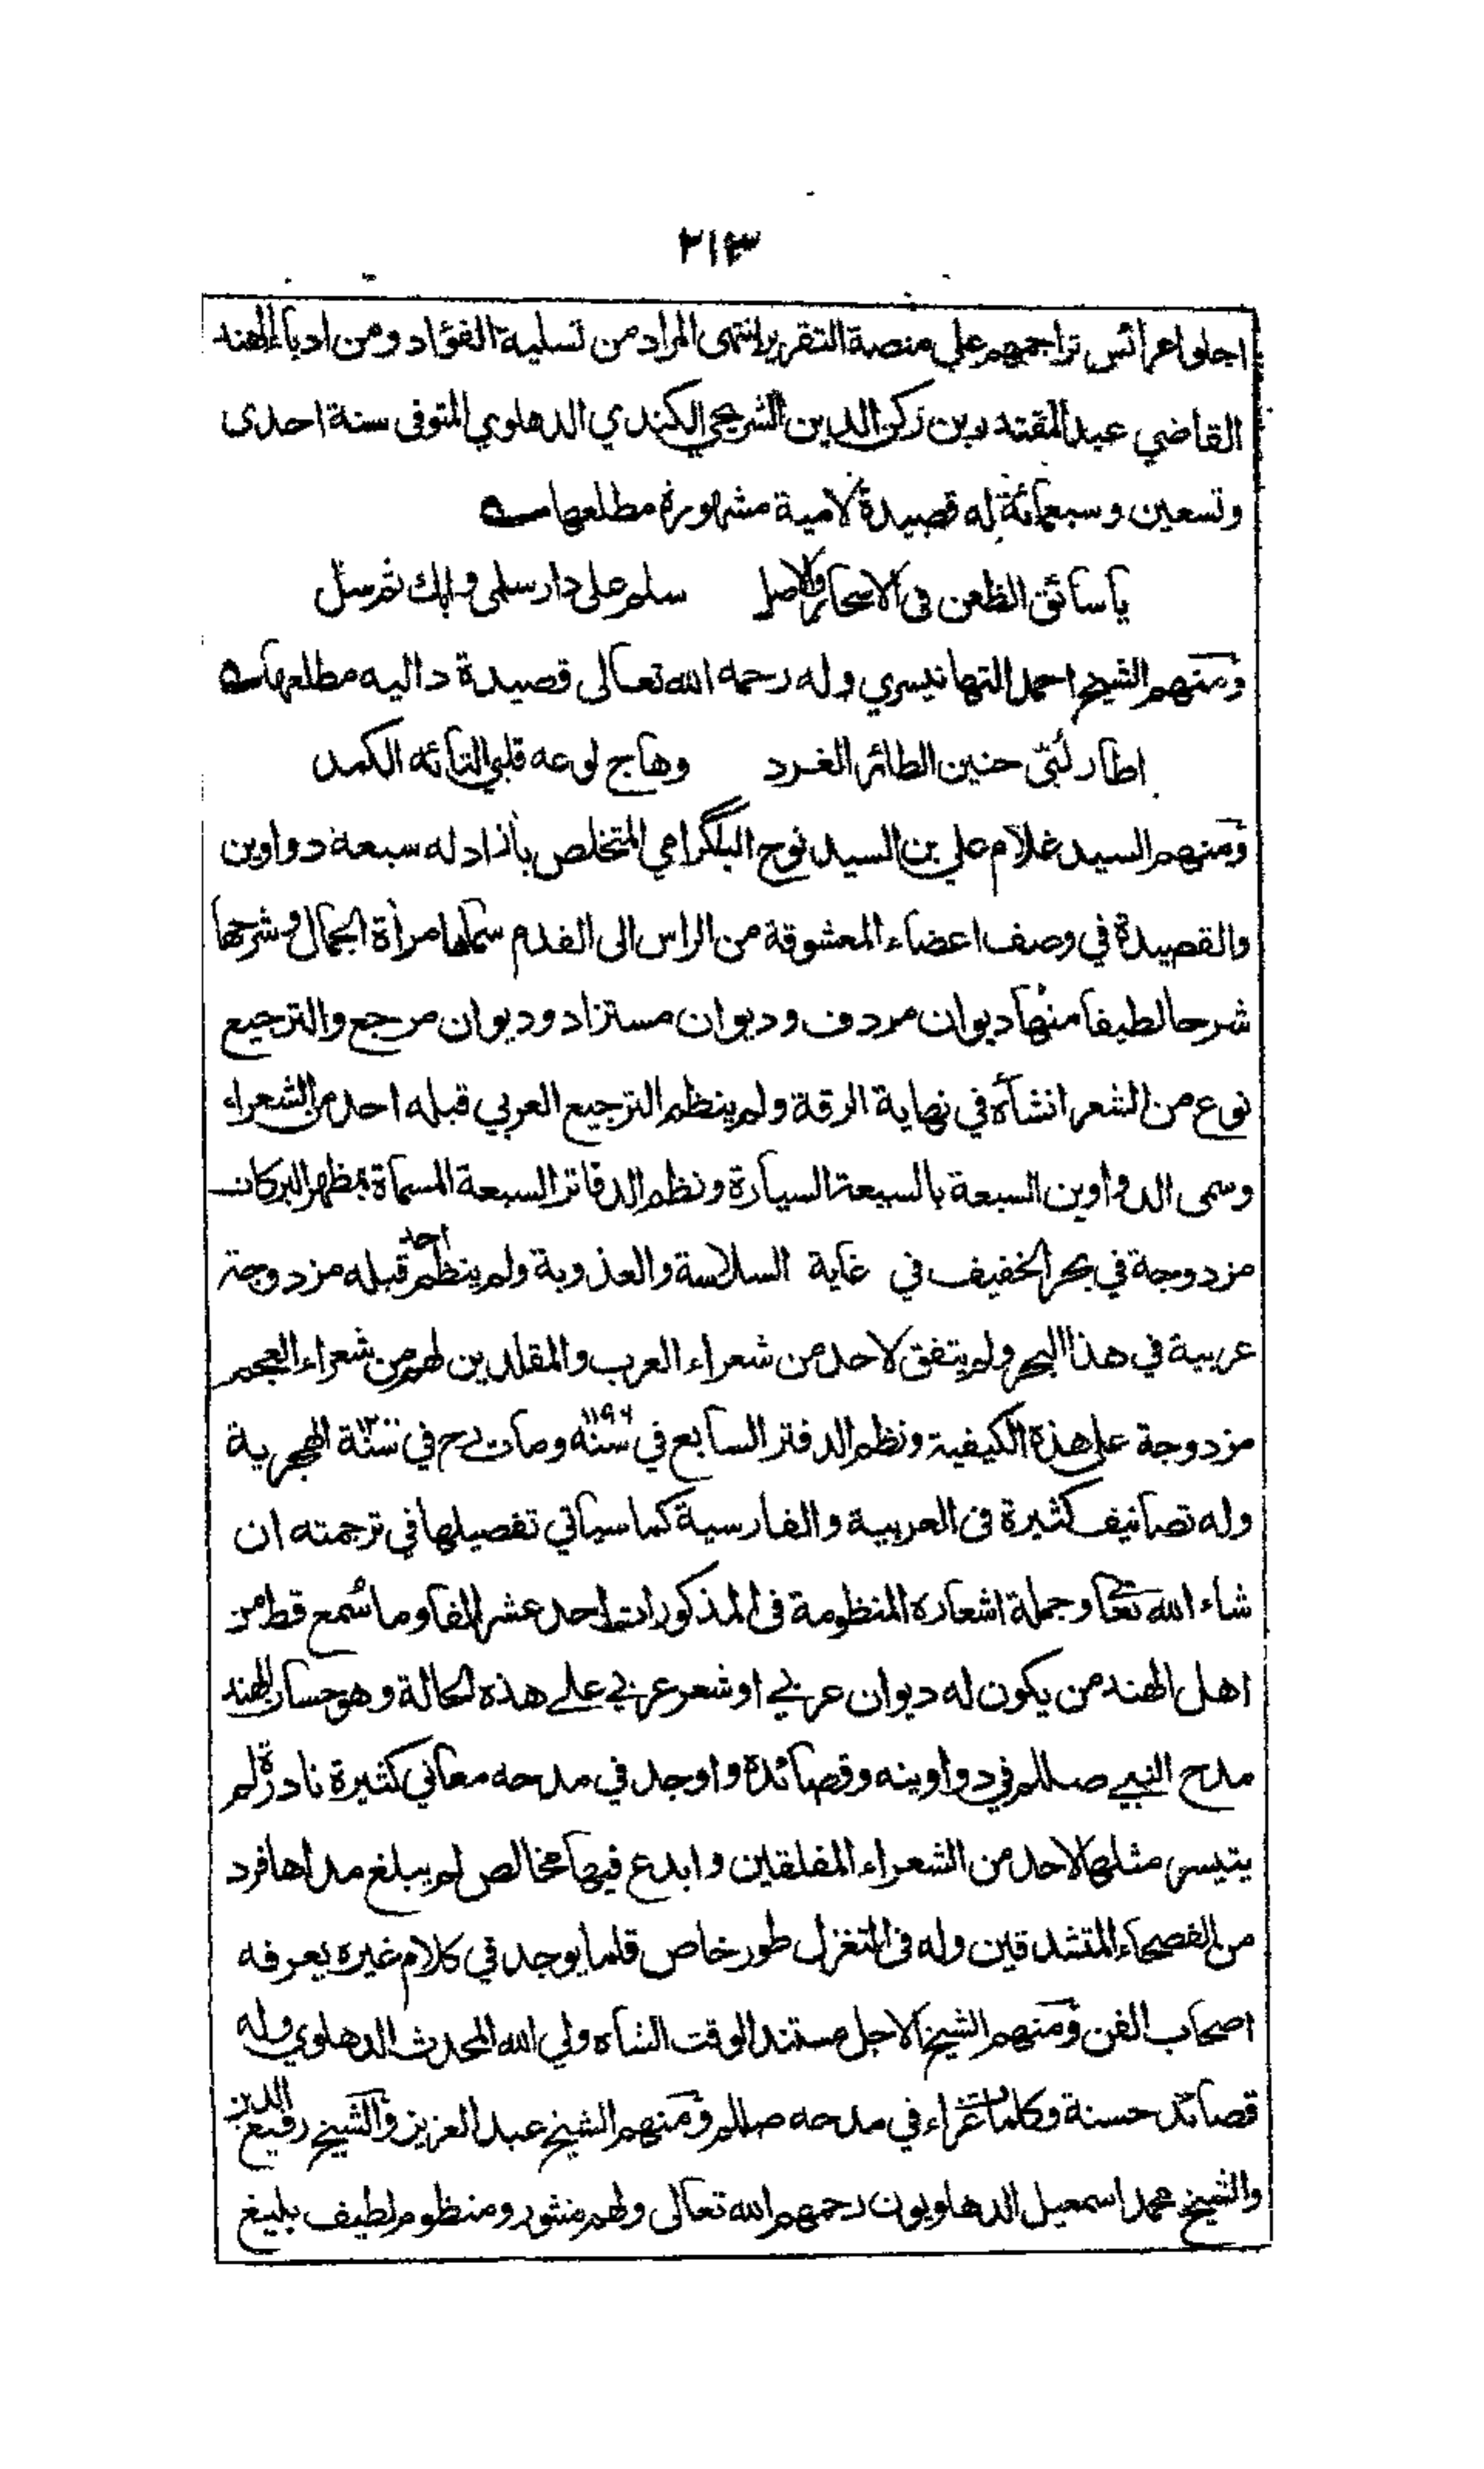 ٢١٣
اجلوا عرائس تراجمهم على منصة التقرير انتهى المراد من تسلية الفؤاد ومن ادباء الهند
القاضي عبد المقتدر بن ركن الدين الشريحي الكندي الدهلوي المتوفى سنة احدى
وتسعين وسبعمائة له قصيدة لامية مشهورة مطلعها
يا سائق الظعن فى الاسحار والاصل سلم على دار سلمى وابك ثم سل
ومنهم الشيخ احمد التهانيسري وله رحمه الله تعالى قصيدة داليه مطلعها
اطار لبّى حنين الطائر الغرد وهاج لوعه قلبي التائه الكمد
ومنهم السيد غلام علي بن السيد نوح البلگرامي المتخلص بآزاد له سبعة دواوين
والقصيدة في وصف اعضاء المعشوقة من الراس الى القدم سماها مرأة الجمال وشرحها
شرحا لطيفا منها ديوان مردف وديوان مستزاد وديوان مرجع والترجيع
نوع من الشعر انشأه في نهاية الرقة ولم ينظم الترجيع العربي قبله احد من الشعراء
وسمى الدواوين السبعة بالسبعة السيارة ونظم الدفاتر السبعة المسماة بمظهر البركات
مزدوجة في بحر الخفيف في غاية السلاسة والعذوبة ولم ينظم احد قبله مزدوجة
عربية في هذا البحر ولم يتفق لاحد من شعراء العرب والمقلدين لهم من شعراء العجم
مزدوجة على هذة الكيفية ونظم الدفتر السابع في سنه ١١٩٤ ومات رح في سنة ١٢٠٠ الهجرية
وله تصانيف كثيرة فى العربية والفارسية كما سياتي تفصيلها في ترجمته ان
شاء الله تعا وجملة اشعاره المنظومة فى المذكورات احد عشر الفا وما سُمع قط من
اهل الهند من يكون له ديوان عربي او شعر عربي على هذه الحالة وهو حسان الهند
مدح النبي صللم في دواوينه وقصائدة واوجد في مدحه معاني كثيرة نادرة لم
يتيسر مثلها لاحد من الشعراء المفلقين وابدع فيها مخالص لم يبلغ مداها فرد
من الفصحاء المتشدقين وله فى التغزل طور خاص قلما يوجد في كلام غيره يعرفه
اصحاب الفن ومنهم الشيخ الاجل مستند الوقت الشاه ولي الله المحدث الدهلوي وله
قصائد حسنة وكلمات غراء في مدحه صللم ومنهم الشيخ عبد العزيز والشيخ رفيع الدين
والشيخ محمد اسمعيل الدهلويون رحمهم الله تعالى ولهم منثور ومنظوم لطيف بليغ